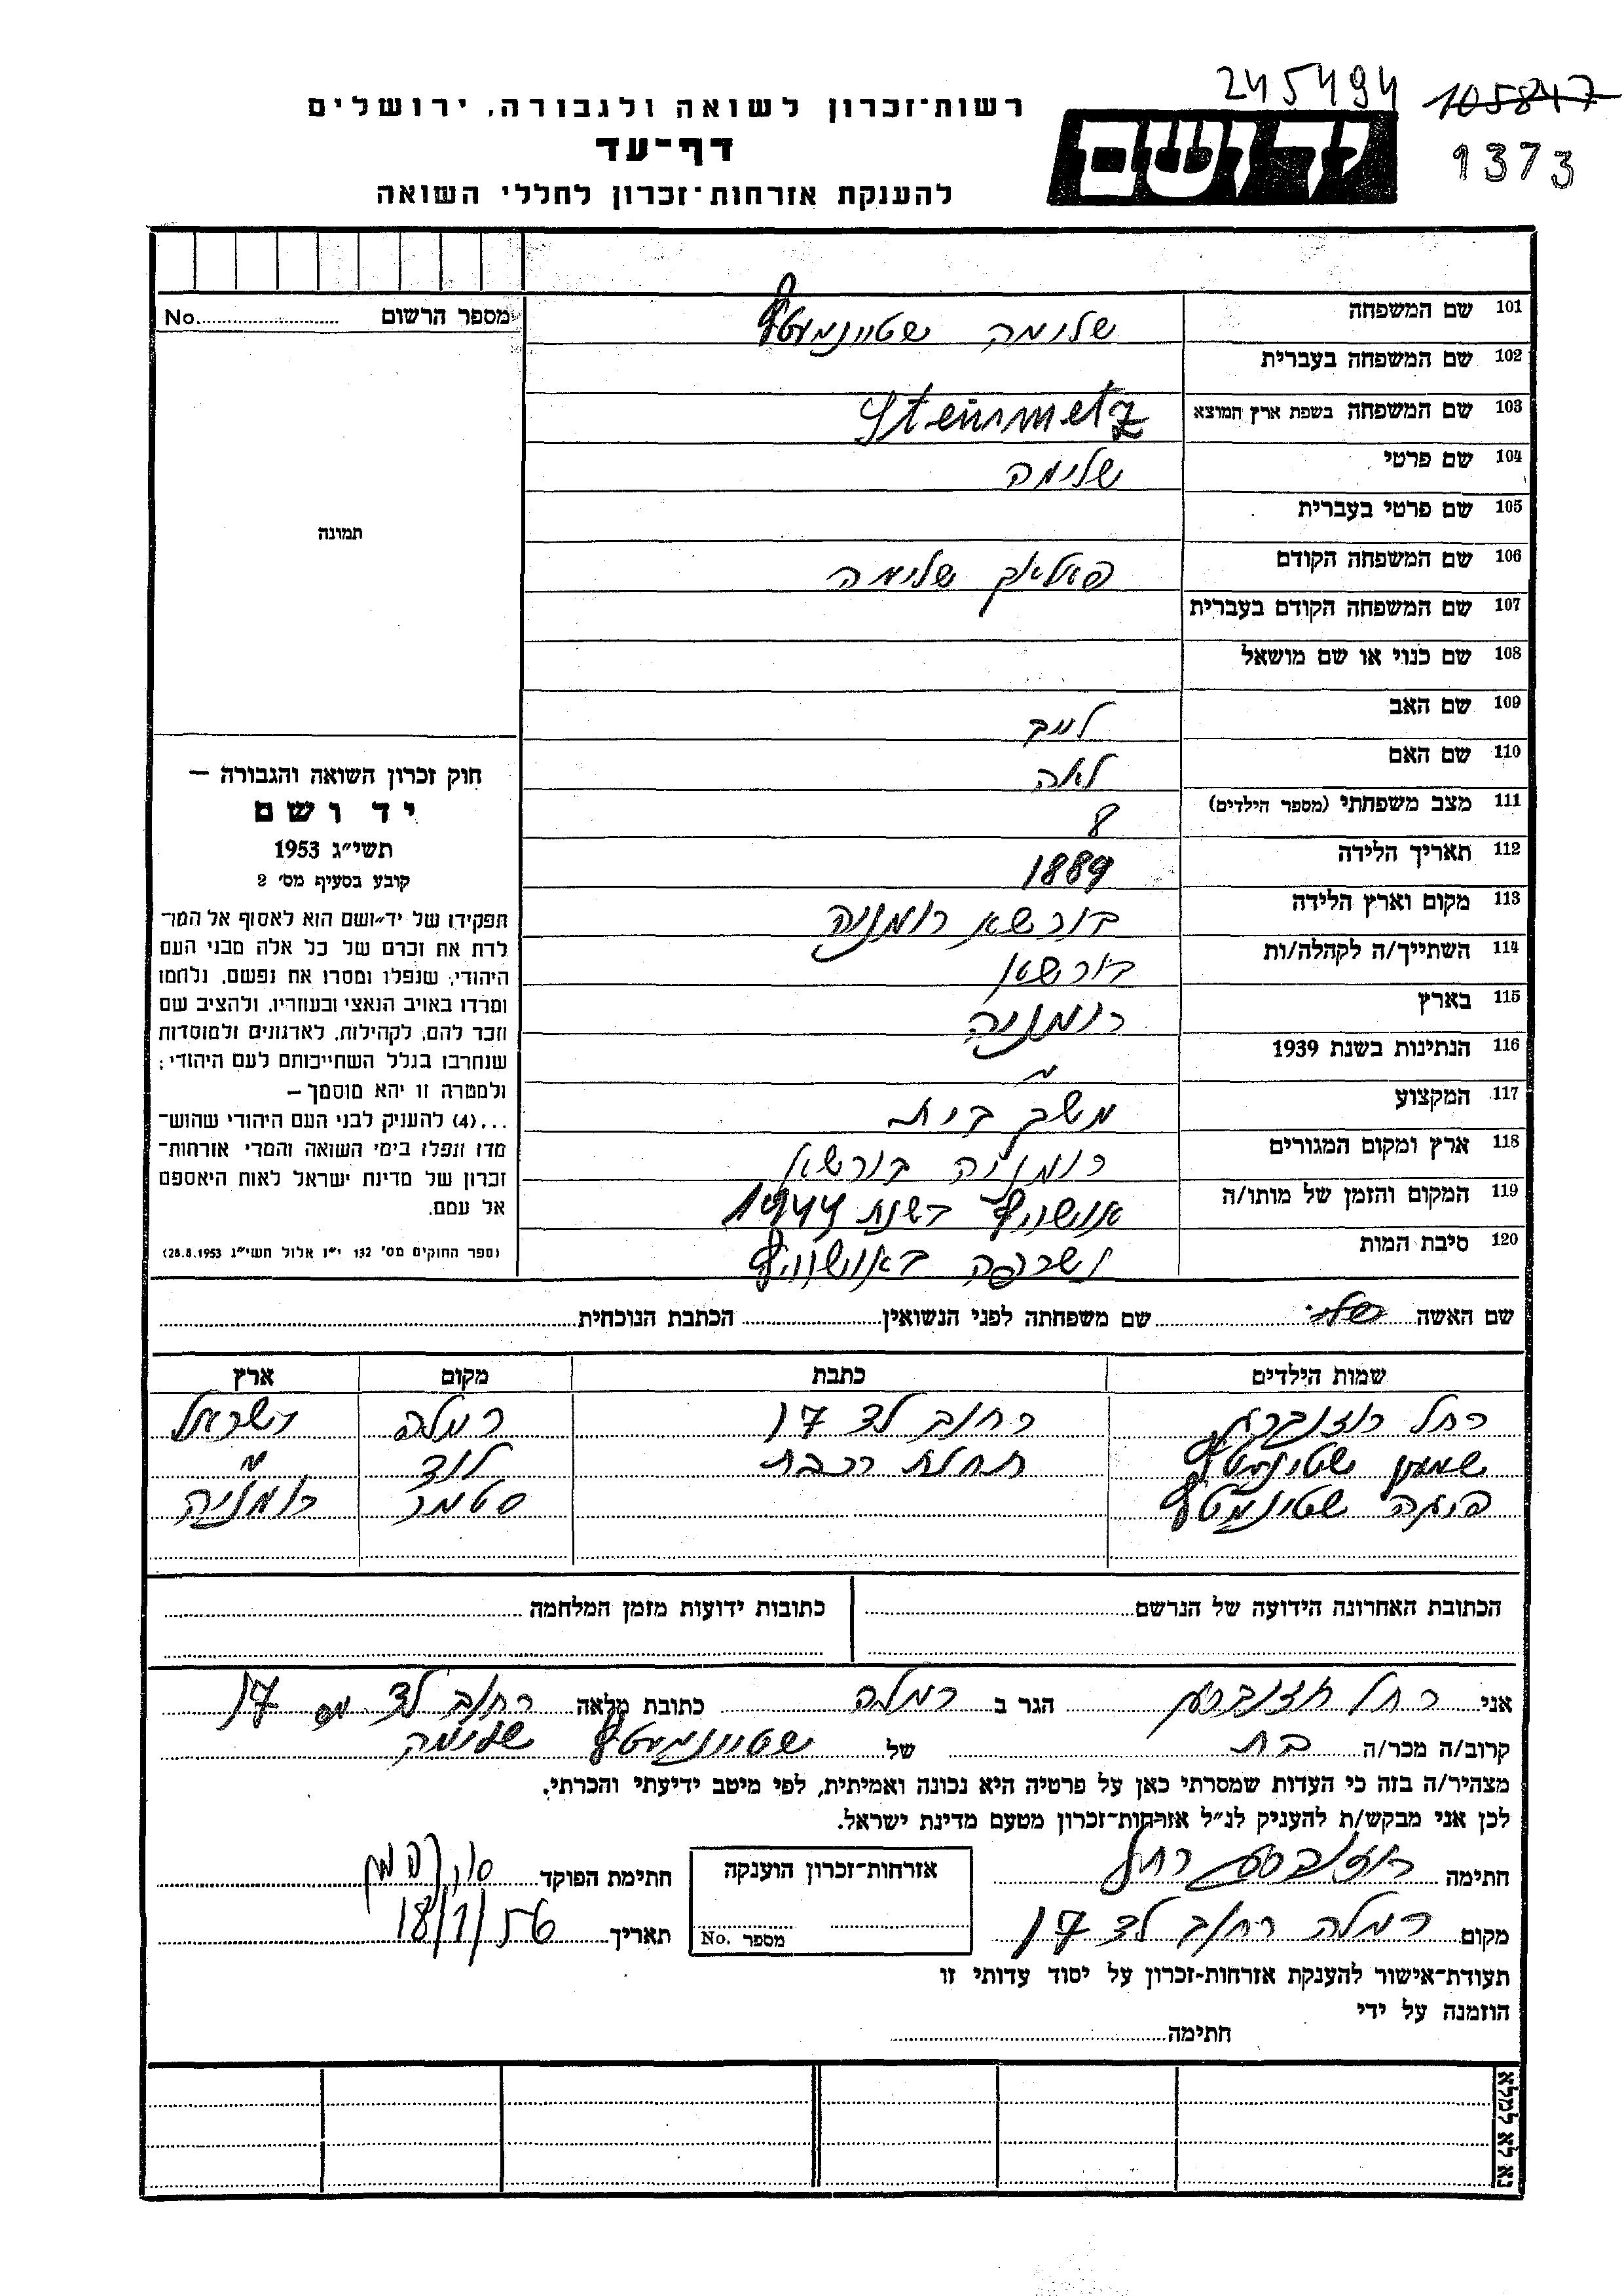 245494
105847
1373
רשות־זכרון לשואה ולגבורה, ירושלים
דף־עד
להענקת אזרחות־זכרון לחללי השואה
יד ושם
מספר הרשום No.
תמונה
101 שם המשפחה שלימה שטיינמעטץ
102 שם המשפחה בעברית
103 שם המשפחה בשפת ארץ המוצא Steinmetz
104 שם פרטי שלימה
105 שם פרטי בעברית
106 שם המשפחה הקודם פאלאק שלימה
107 שם המשפחה הקודם בעברית
108 שם כנוי או שם מושאל
109 שם האב לייב
110 שם האם לאה
111 מצב משפחתי (מספר הילדים) 8
112 תאריך הלידה 1889
113 מקום וארץ הלידה בורשא רומניה
114 השתייך/ה לקהלה/ות בורשא
115 בארץ רומניה
116 הנתינות בשנת 1939 "
117 המקצוע משק בית
118 ארץ ומקום המגורים רומניה בורשא
119 המקום והזמן של מותו/ה אושוויץ בשנת 1944
120 סיבת המות נשרפה באושוויץ
חוק זכרון השואה והגבורה —
יד ושם
תשי״ג 1953
קובע בסעיף מס׳ 2
תפקידו של יד־ושם הוא לאסוף אל המו־
לדת את זכרם של כל אלה מבני העם
היהודי, שנפלו ומסרו את נפשם, נלחמו
ומרדו באויב הנאצי ובעוזריו, ולהציב שם
וזכר להם, לקהילות, לארגונים ולמוסדות
שנחרבו בגלל השתייכותם לעם היהודי;
ולמטרה זו יהא מוסמך —
...(4) להעניק לבני העם היהודי שהוש־
מדו ונפלו בימי השואה והמרי אזרחות־
זכרון של מדינת ישראל לאות היאספם
אל עמם.
(ספר החוקים מס׳ 132 י״ז אלול תשי״ג 28.8.1953)
שם האשה שם משפחתה לפני הנשואין הכתבת הנוכחית
שמות הילדים כתבת מקום ארץ
רחל רוזנברג רחוב לד 17 רמלה ישראל
שמעון שטינמטץ תחלת רכבת לוד "
פייגה שטינמטץ סטמר רומניה
הכתובת האחרונה הידועה של הנרשם
כתובות ידועות מזמן המלחמה
אני רחל רוזנברג הגר ב רמלה כתובת מלאה רחוב לד מס 17
קרוב/ה מכר/ה בת של שטיינמעטץ שלימה
מצהיר/ה בזה כי העדות שמסרתי כאן על פרטיה היא נכונה ואמיתית, לפי מיטב ידיעתי והכרתי.
לכן אני מבקש/ת להעניק לנ״ל אזרחות־זכרון מטעם מדינת ישראל.
חתימה רוזנברג רחל
אזרחות־זכרון הוענקה
מספר No.
חתימת הפוקד
מקום רמלה רחוב לד 17
תאריך 18/1/56
תעודת־אישור להענקת אזרחות־זכרון על יסוד עדותי זו
הוזמנה על ידי
חתימה
נא לא למלא